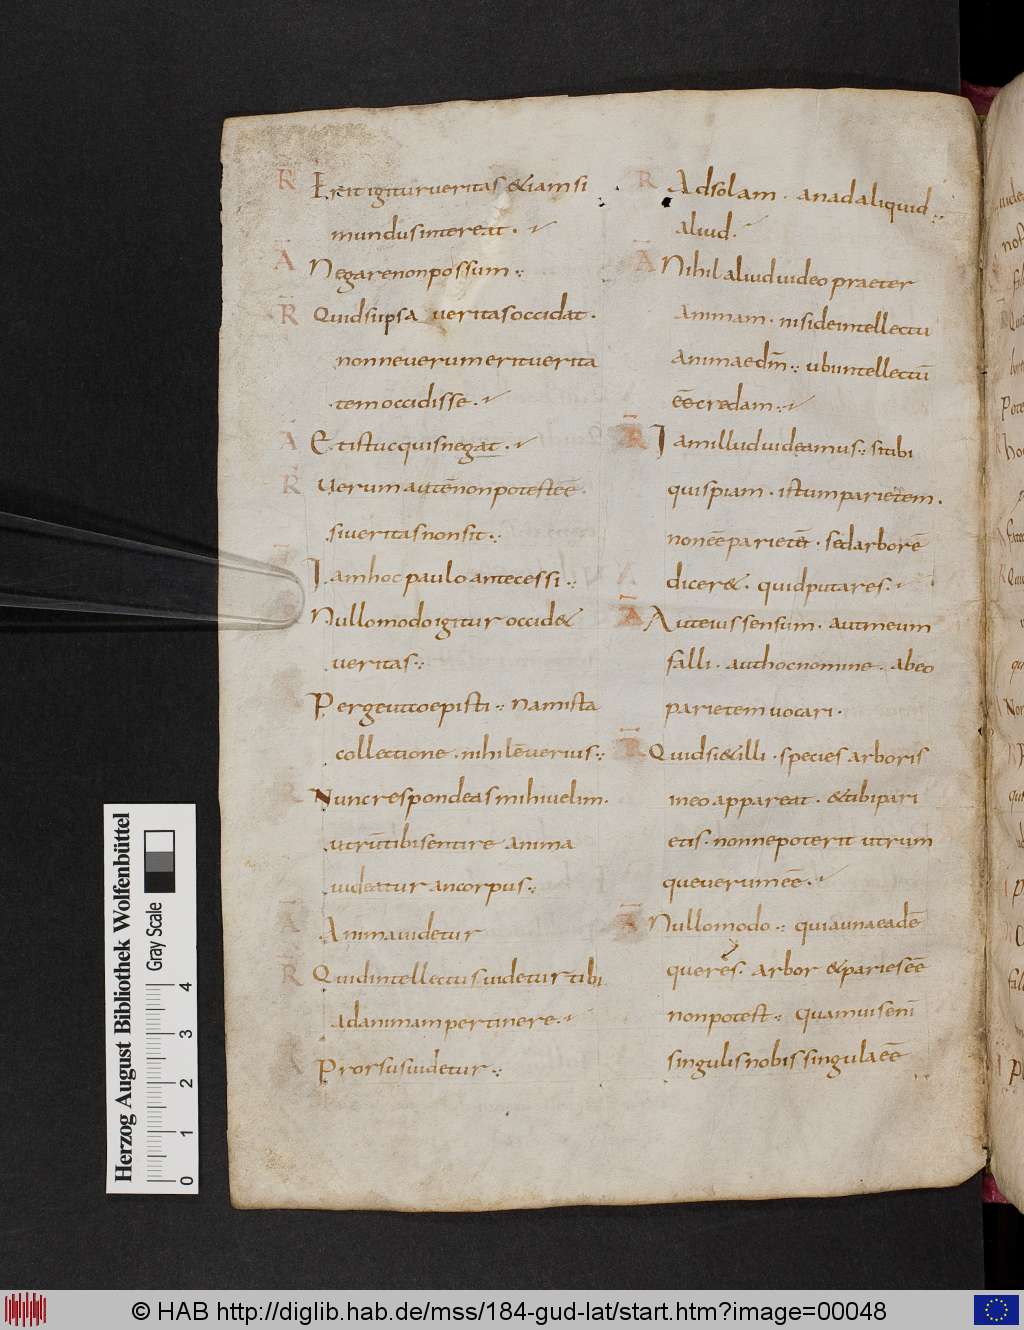 R̄ Erit igitur veritas & iam si
mundus intereat.
Ā Negare non possum:
R̄ Quid si ipsa veritas occidat.
nonne verum erit verita
tem occidisse.
Ā Et istuc quis negat.
R̄ Uerum autē non potest eē.
si veritas non sit:
Iam hoc paulo ante cessi:
Nullo modo igitur occid&
veritas:
Perge ut coepisti: nam ista
collectione. nihil ē verius:
R̄ Nunc respondeas mihi velim.
utrū tibi sentire anima
videatur an corpus:
Ā Anima videtur
R̄ Quid intellectus videtur tibi
ad animam pertinere.
Prorsus videtur:
R̄ Ad solam. an ad aliquid
aliud.
Ā Nihil aliud video praeter
animam. nisi de intellectu
animae dm̄: ubi intellectū
eē credam:
R̄ Iam illud videamus: si tibi
quispiam. istum parietem.
non eē parietē. sed arborē
dicer&. quid putares.
Ā Aut eius sensum. aut meum
falli. aut hoc nomine. ab eo
parietem vocari.
R̄ Quid si & illi. species arboris
in eo appareat. & tibi pari
etis. nonne poterit utrum
que verum eē.
Ā Nullo modo: quia una eadē
que res. arbor & paries eē
non potest: quamvis enī
singulis nobis singula eē
Herzog August Bibliothek Wolfenbüttel
Gray Scale
0 1 2 3 4
© HAB http://diglib.hab.de/mss/184-gud-lat/start.htm?image=00048